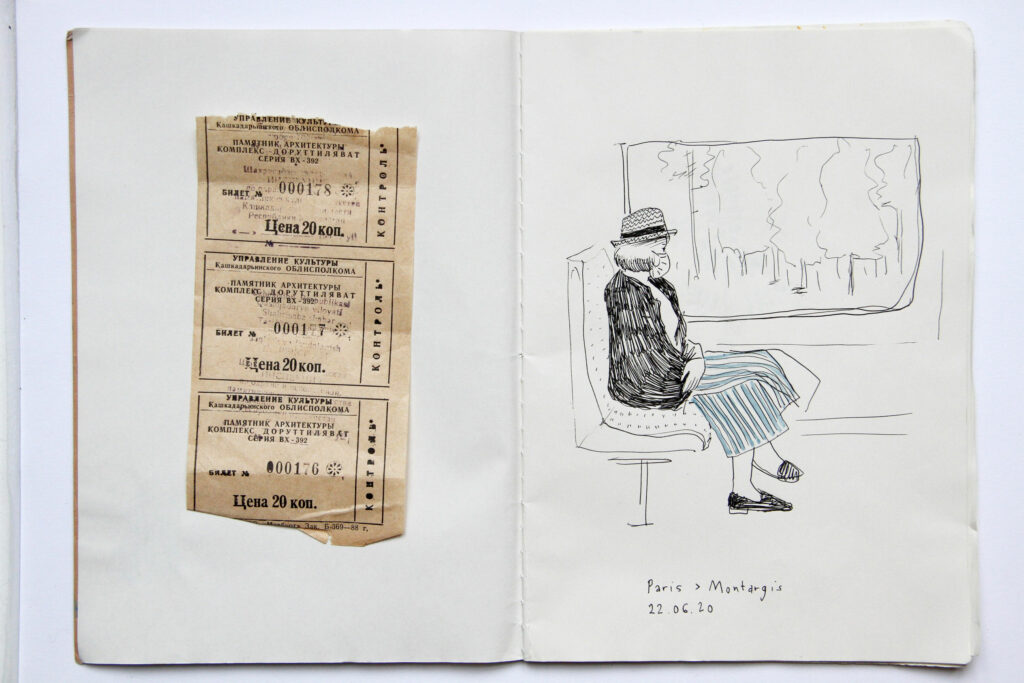 УПРАВЛЕНИЕ КУЛЬТУРЫ
Кашкадарьинского ОБЛИСПОЛКОМА
ПАМЯТНИК АРХИТЕКТУРЫ
КОМПЛЕКС ДОРУТТИЛЯВАТ
СЕРИЯ ВХ-392
БИЛЕТ № 000178
Цена 20 коп.
КОНТРОЛЬ
№
УПРАВЛЕНИЕ КУЛЬТУРЫ
Кашкадарьинского ОБЛИСПОЛКОМА
ПАМЯТНИК АРХИТЕКТУРЫ
КОМПЛЕКС ДОРУТТИЛЯВАТ
СЕРИЯ ВХ-392
БИЛЕТ № 000177
Цена 20 коп.
КОНТРОЛЬ
УПРАВЛЕНИЕ КУЛЬТУРЫ
Кашкадарьинского ОБЛИСПОЛКОМА
ПАМЯТНИК АРХИТЕКТУРЫ
КОМПЛЕКС ДОРУТТИЛЯВАТ
СЕРИЯ ВХ-392
БИЛЕТ № 000176
Цена 20 коп.
КОНТРОЛЬ
Зак. Б-369—88 г.
Paris > Montargis
22.06.20